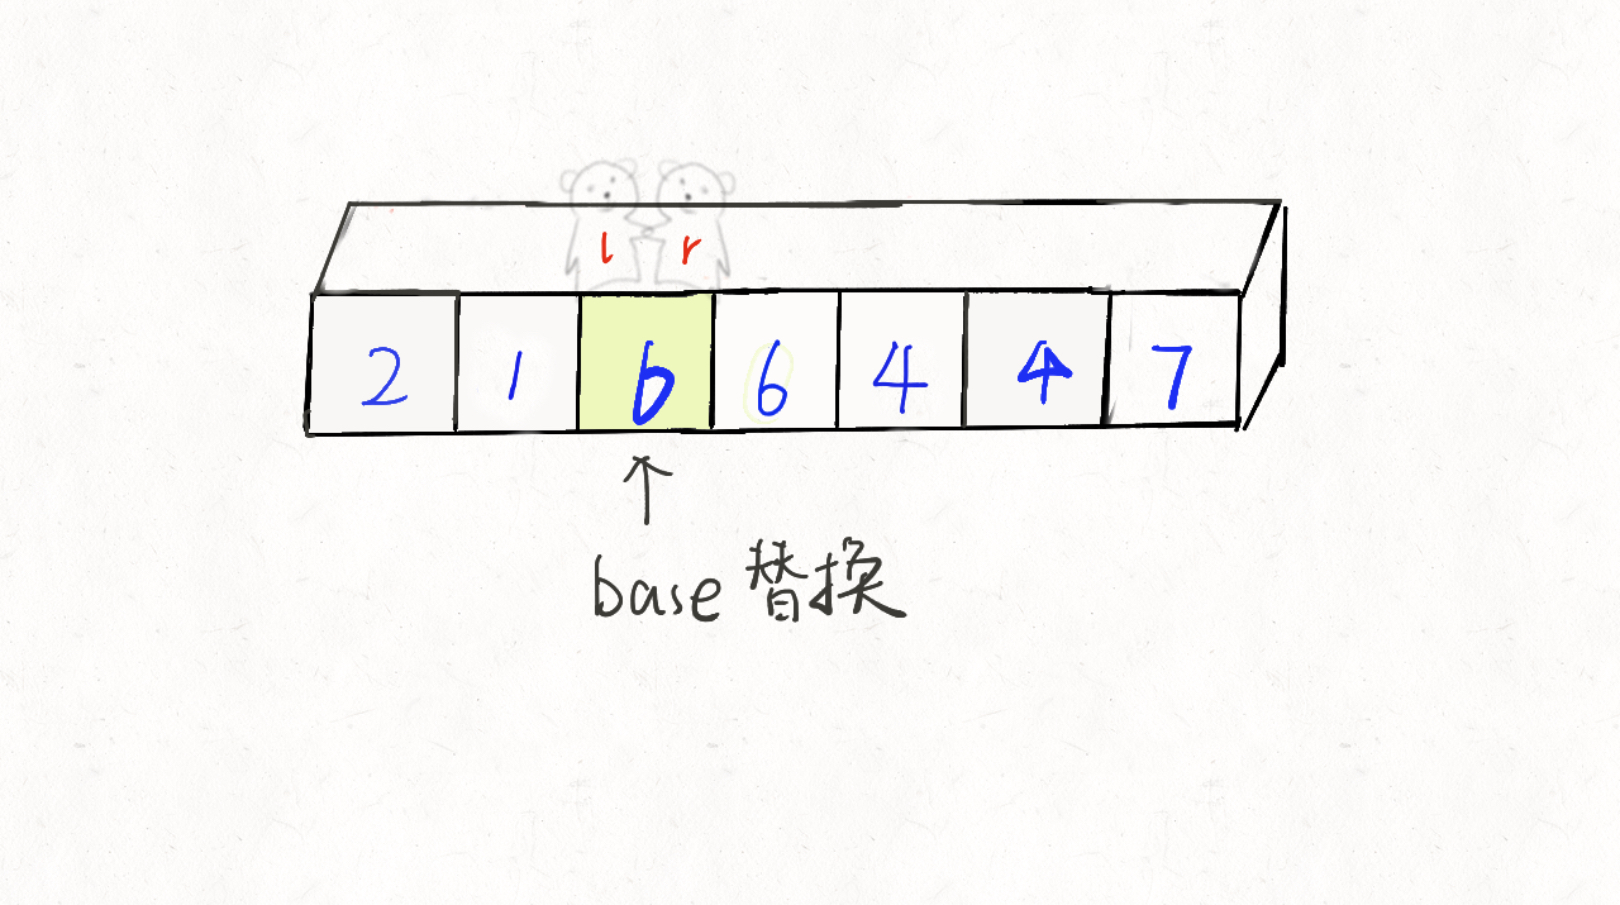 l r
2 1 6 6 4 4 7
base 替换